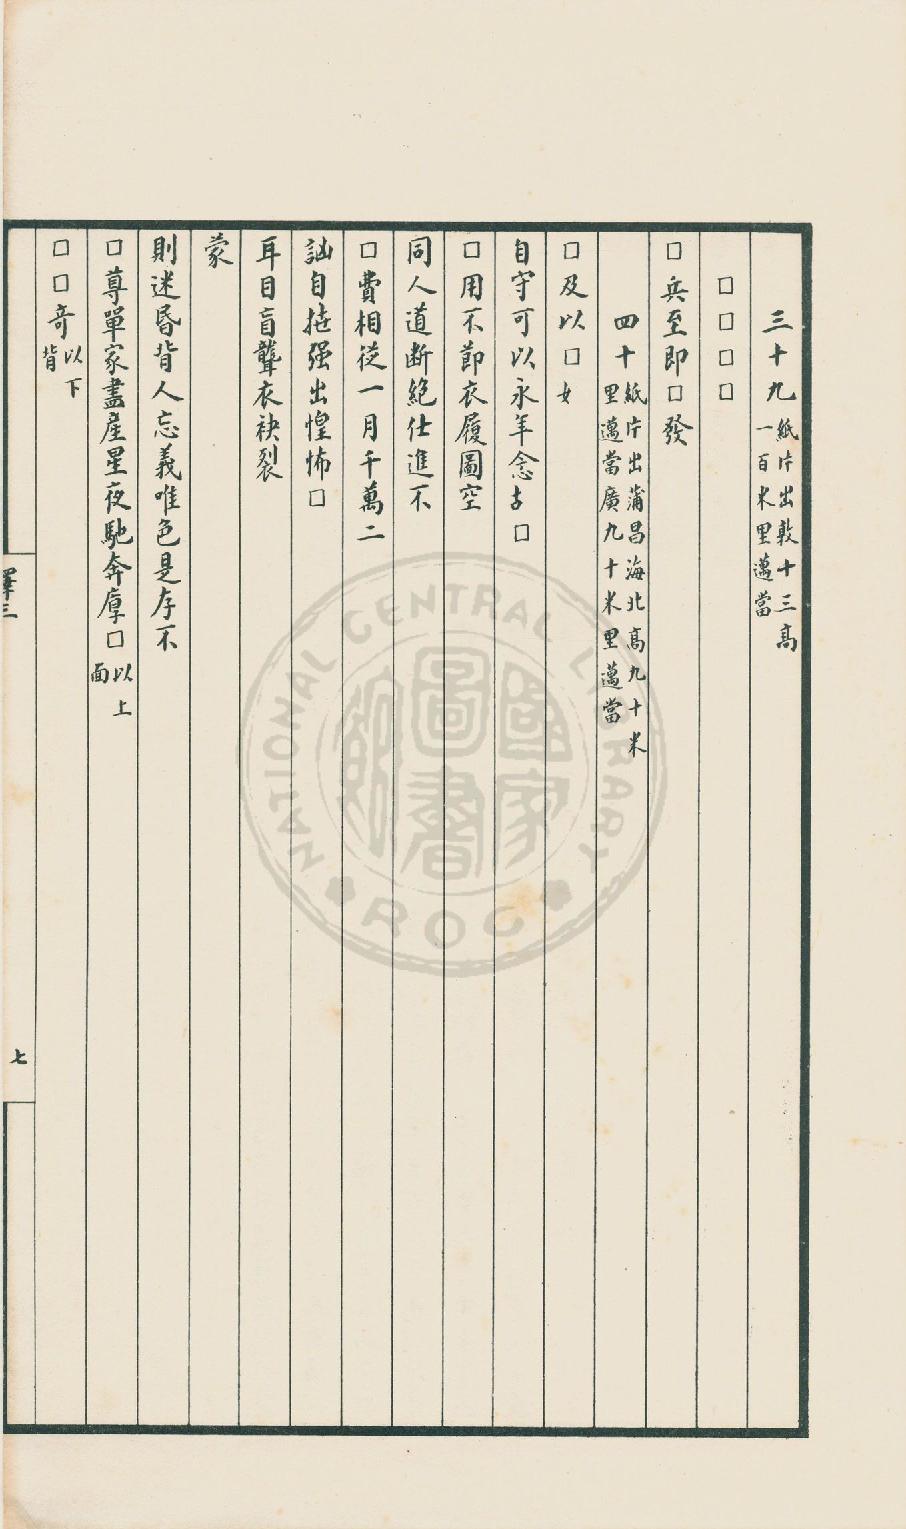 三十九 紙片出敦十三高一百米里邁當
□□□□
□兵至即□發
四十 紙片出蒲昌海北高九十米里邁當廣九十米里邁當
□及以□女
自守可以永年念古□
□用不節衣履圖空
同人道斷絕仕進不
□費相從一月千萬二
訕自掋强出惶怖□
耳目盲聾衣袂裂
蒙
則迷昬背人忘義唯色是存不
□蓴單家盡產星夜馳奔㡯□ 以上面
□□奇 以下背
釋三
七
NATIONAL CENTRAL LIBRARY
ROC
國家圖書館